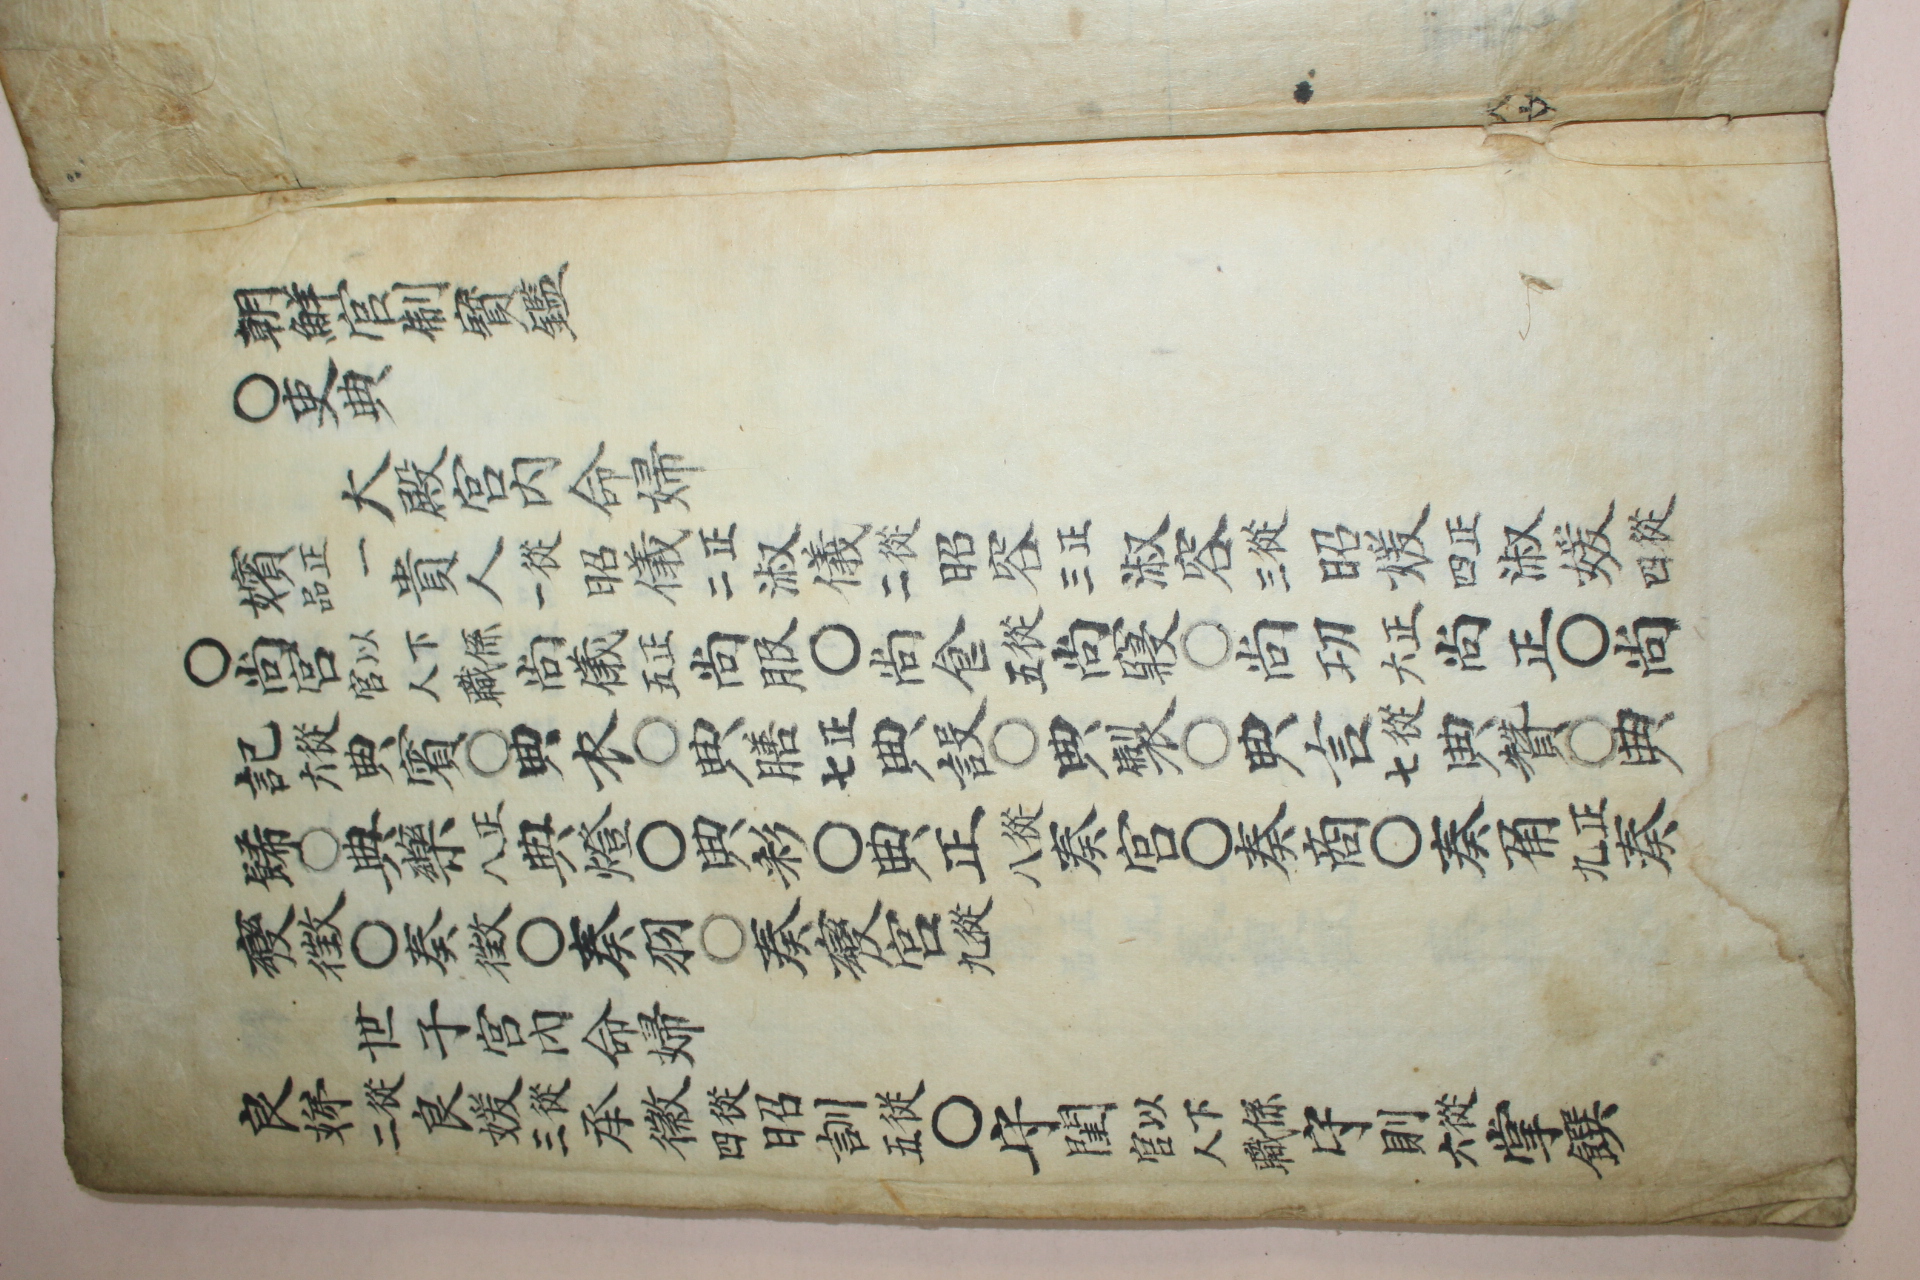 朝鮮官制寶鑑
○吏典
大殿宮內命婦
嬪正一品貴人從一昭儀正二淑儀從二昭容正三淑容從三昭煖正四淑媛從四
○尙宮以下係宮人職尙儀正五尙服○尙食從五尙寢○尙功正六尙正○尙
記從六典賓○典衣○典膳正七典設○典製○典言從七典贊○典
餙○典藥正八典燈○典彩○典正從八奏宮○奏商○奏角正九奏
變徵○奏徵○奏羽○奏變宮從九
世子宮內命婦
良娣從二良媛從三承徽從四昭訓從五○守閨以下係宮人職守則從六掌饌